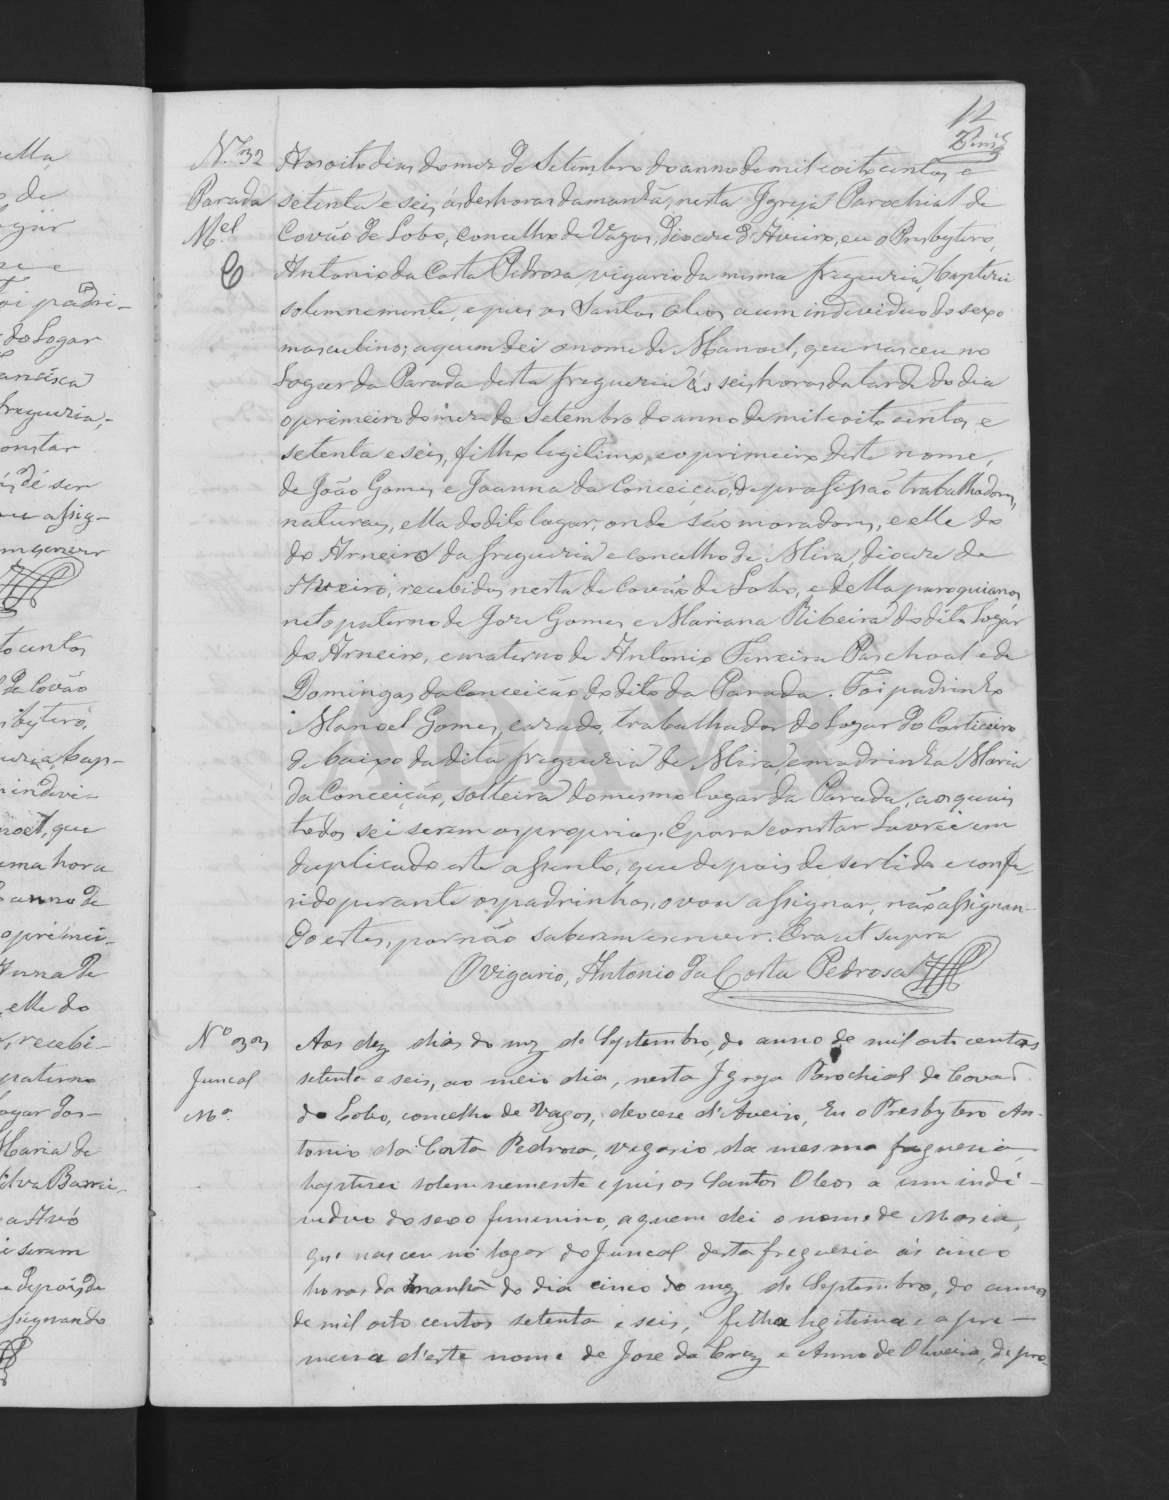 12
N.º 32
Parada
M.el
Aos oito dias do mez de Setembro do anno de mil oito centos e
setenta e seis, ás des horas da manhã, nesta Igreja Parochial de
Covão de Lobo, concelho de Vagos, Diocese d'Aveiro, eu o Presbytero,
Antonio da Costa Pedrosa, vigario da mesma freguezia, baptizei
solemnemente, e puz os Santos oleos a um individuo do sexo
masculino; a quem dei o nome de Manoel, que nasceu no
logar da Parada desta freguezia ás seis horas da tarde do dia
o primeiro do mez de Setembro do anno de mil oito centos e
setenta e seis, filho legitimo, e o primeiro deste nome,
de João Gomes e Joanna da Conceição, de profissão trabalhadores,
naturaes, ella do dito logar, onde são moradores, e elle do
do Arneiro da freguezia e concelho de Mira, diocese de
Aveiro, recebidos nesta de Covão de Lobo, e della paroquianos,
neto paterno de Jose Gomes e Mariana Ribeira do dito logar
do Arneiro, e materno de Antonio Ferreira Paschoal e de
Domingas da Conceição do dito da Parada. Foi padrinho
Manoel Gomes, cazado, trabalhador do logar do Corticeiro
de baixo da dita freguezia de Mira, e madrinha Maria
da Conceição, solteira do mesmo logar da Parada, aos quais
todos sei serem os proprios. E para constar lavrei em
duplicado este assento, que depois de ser lido e confe-
rido perante os padrinhos, o vou assignar, não assignan-
do estes, por não saberem escrever. Era ut supra
O vigario, Antonio da Costa Pedrosa
Nº 33
Juncal
Mª
Aos dez dias do mez de Septembro, do anno de mil oito centos
setenta e seis, ao meio dia, nesta Igreja Parochial de Covão
do Lobo, concelho de Vagos, deocese d'Aveiro, Eu o Presbytero An-
tonio da Costa Pedrosa, vegario da mesma freguesia
baptizei solemnemente e puis os Santos Oleos a um indi-
viduo do sexo femenino, a quem dei o nome de Maria,
que nasceu no logar do Juncal desta freguesia ás cinco
horas da manhã do dia cinco do mez de Septembro, do anno
de mil oito centos setenta e seis, filha legitima e a pri-
meira d'este nome de Jose da Cruz e Anna de Oliveira, de pro-